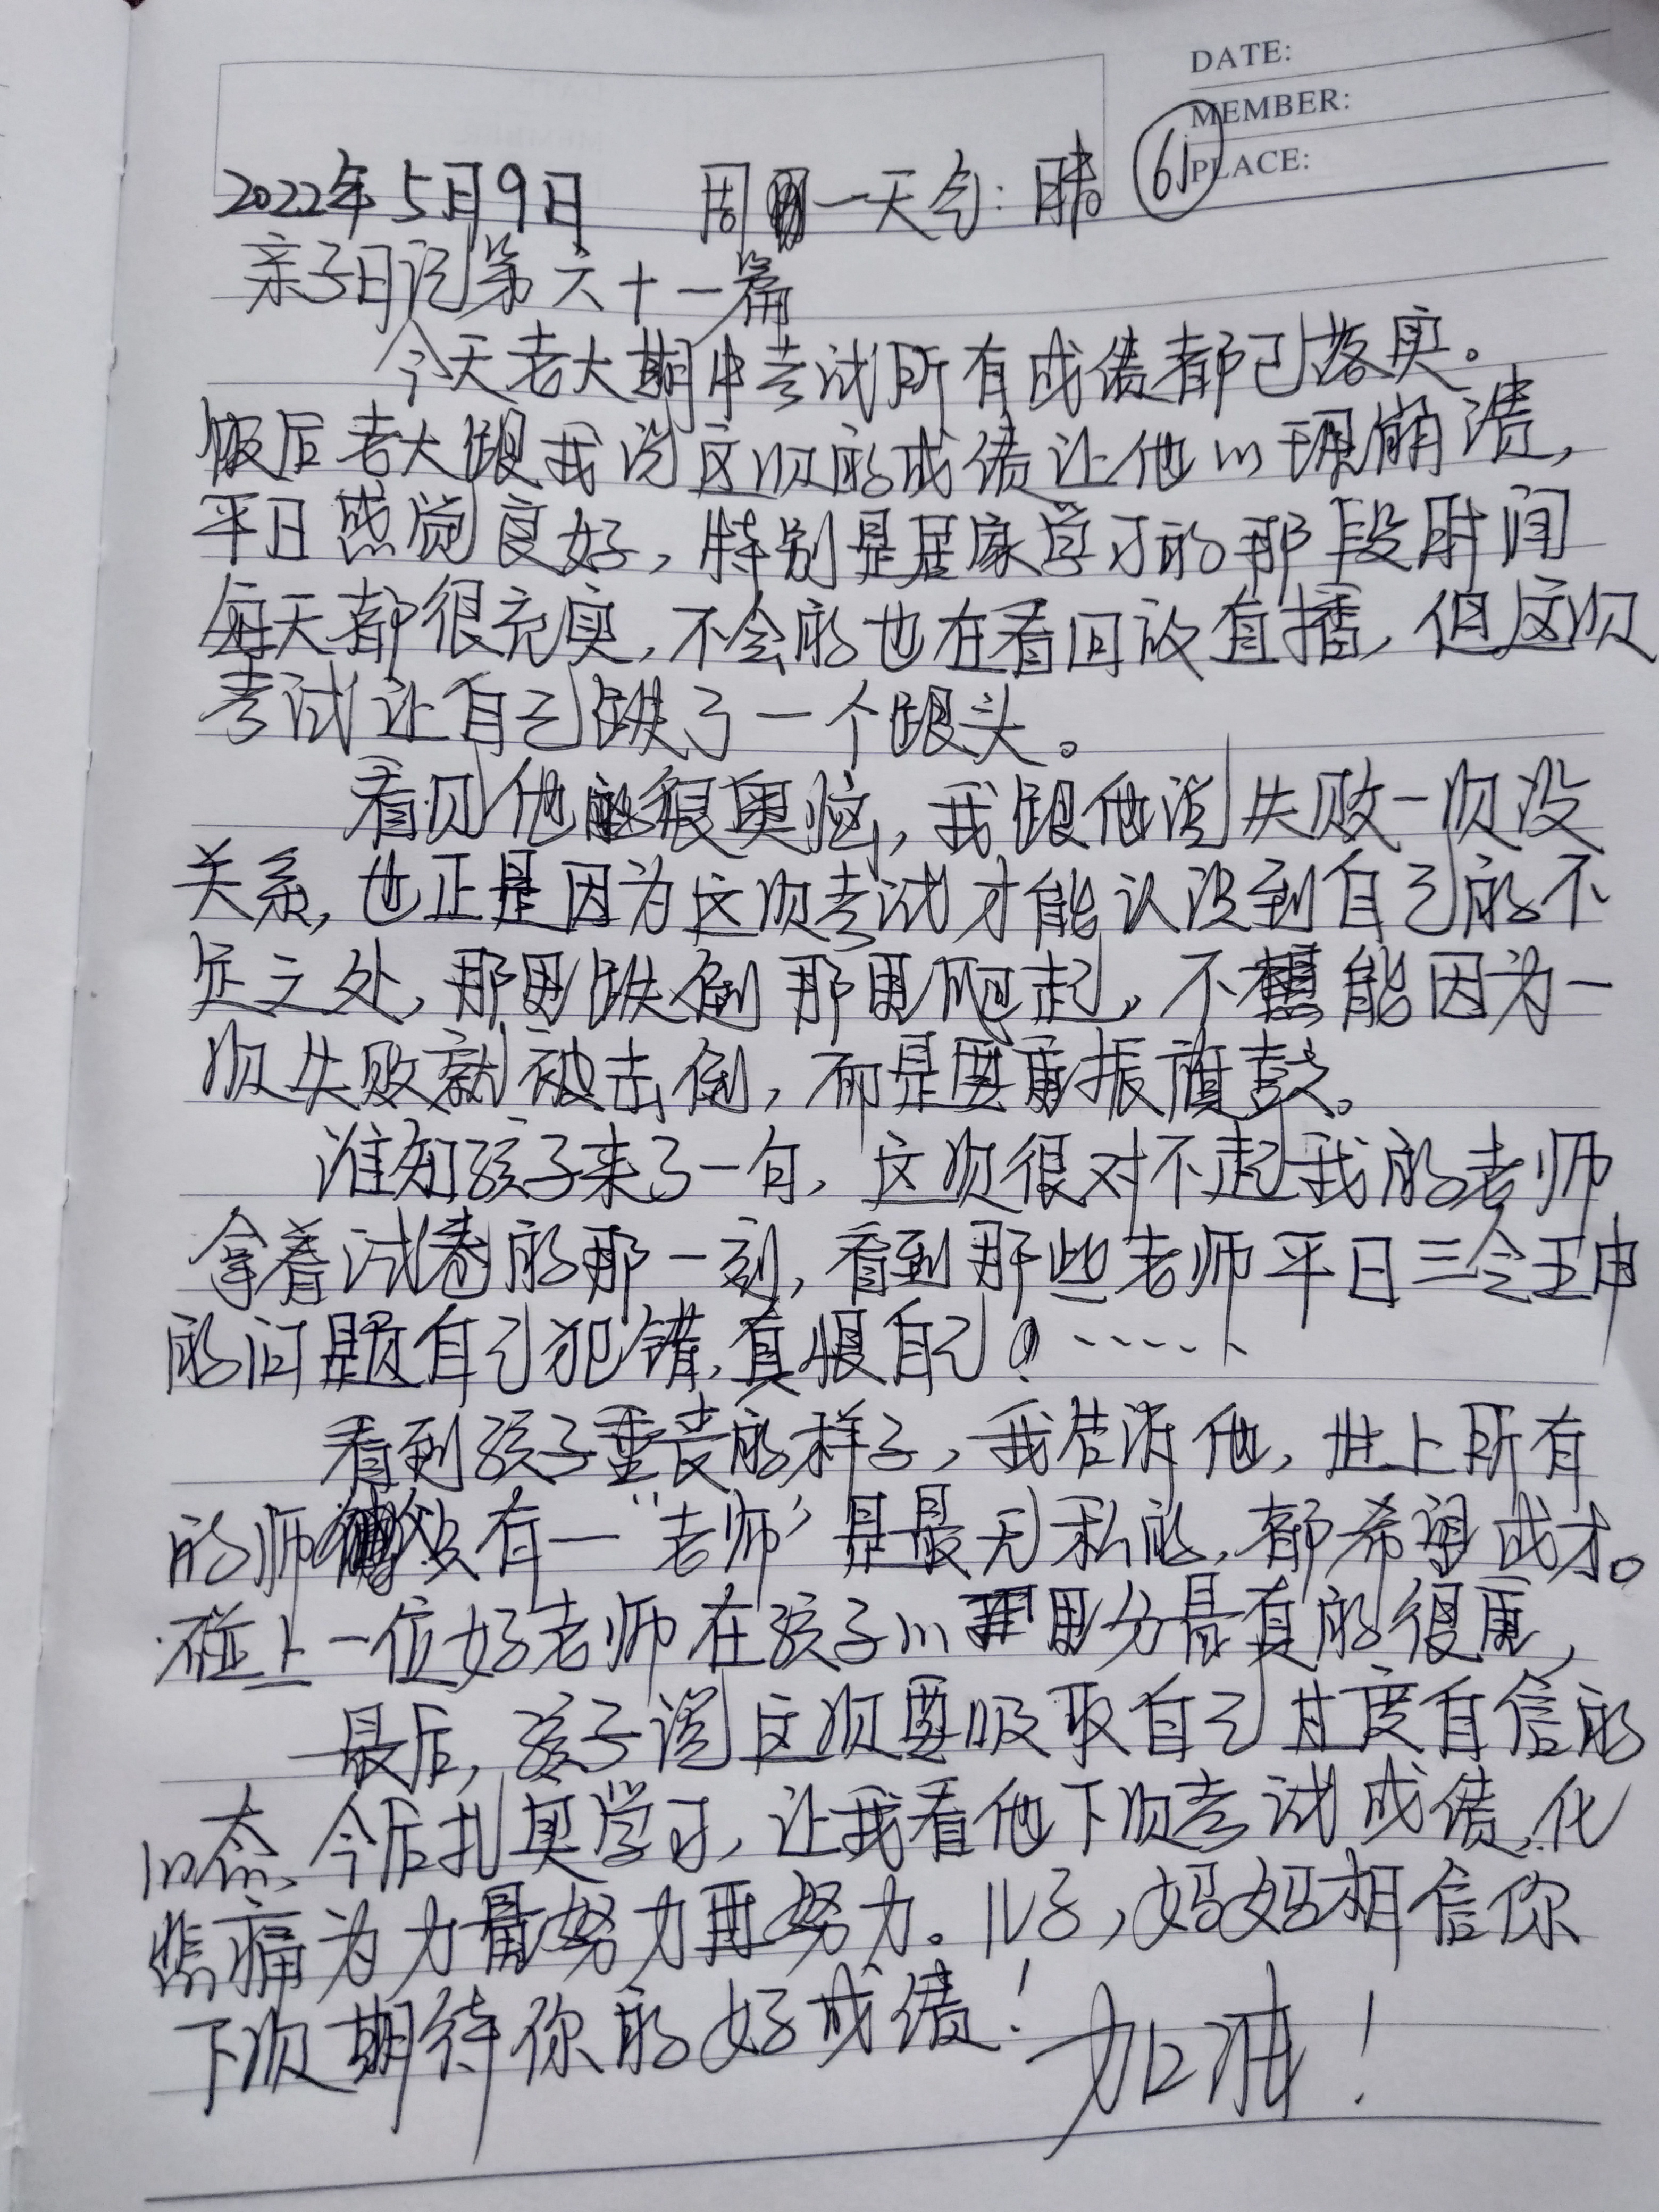 DATE:
MEMBER:
PLACE:
61
2022年5月9日 周一天气：晴
亲子日记第六十一篇
今天老大期中考试所有成绩都已落实。
饭后老大跟我说这次的成绩让他心理崩溃，
平日感觉良好，特别是居家学习的那段时间
每天都很充实，不会的也在看回放直播，但这次
考试让自己跌了一个跟头。
看见他很奥恼，我跟他说失败一次没
关系，也正是因为这次考试才能认识到自己的不
足之处，那里跌倒那里爬起，不能因为一
次失败就被击倒，而是要重振旗鼓。
谁知孩子来了一句，这次很对不起我的老师
拿着试卷的那一刻，看到那些老师平日三令五申
的问题自己犯错，真恨自己！……
看到孩子垂丧的样子，我告诉他，世上所有
的师 没有一“老师”是最无私的，都希望成才。
碰上一位好老师在孩子心里分量真的很重，
最后，孩子说这次要吸取自己过度自信的
心态，今后扎实学习，让我看他下次考试成绩，化
悲痛为力量努力再努力。儿子，妈妈相信你
下次期待你的好成绩！加油！